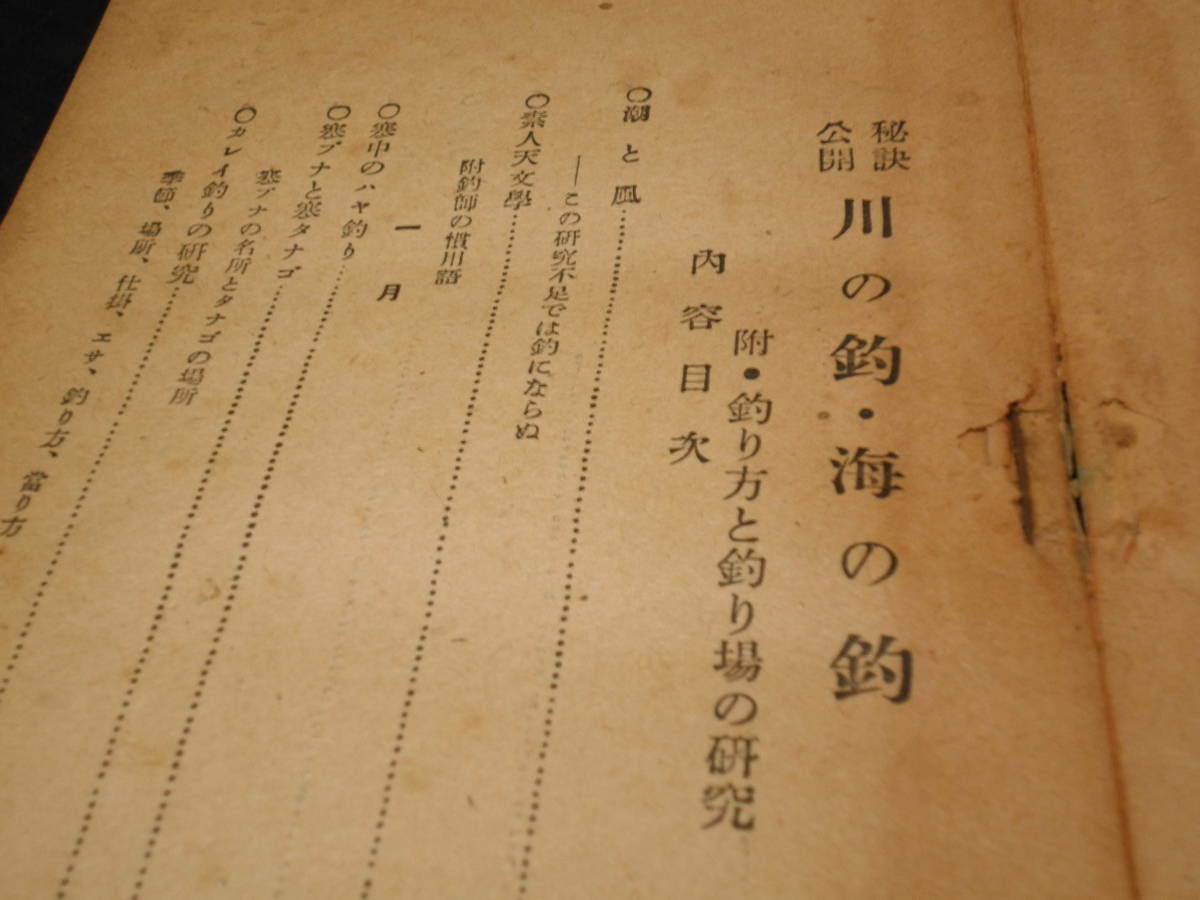 秘訣
公開
川の釣・海の釣
附・釣り方と釣り場の研究
内容目次
〇潮と風……
―この研究不足では釣にならぬ
〇素人天文學……
附釣師の慣用語
一月
〇寒中のハヤ釣り……
〇寒ブナと寒タナゴ……
寒ブナの名所とタナゴの場所
〇カレイ釣りの研究……
季節、場所、仕掛、エサ、釣り方、當り方